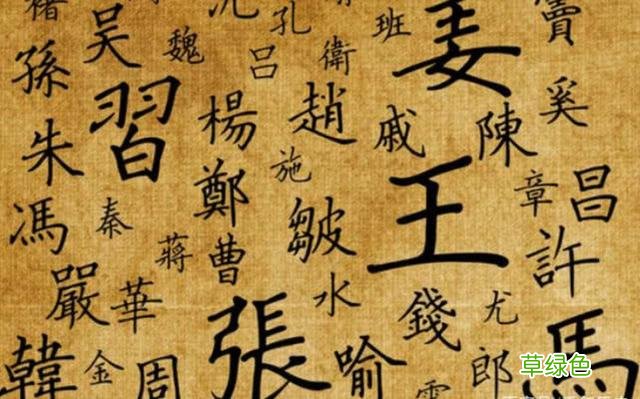 褚
吳
魏
沈
孔
呂
班
衛
姜
竇
孫
習
楊
趙
戚
陳
奚
朱
鄭
施
章
昌
馮
秦
蔣
曹
皺
王
許
嚴
華
水
錢
尤
馬
韓
金
周
張
喻
郎
草绿色